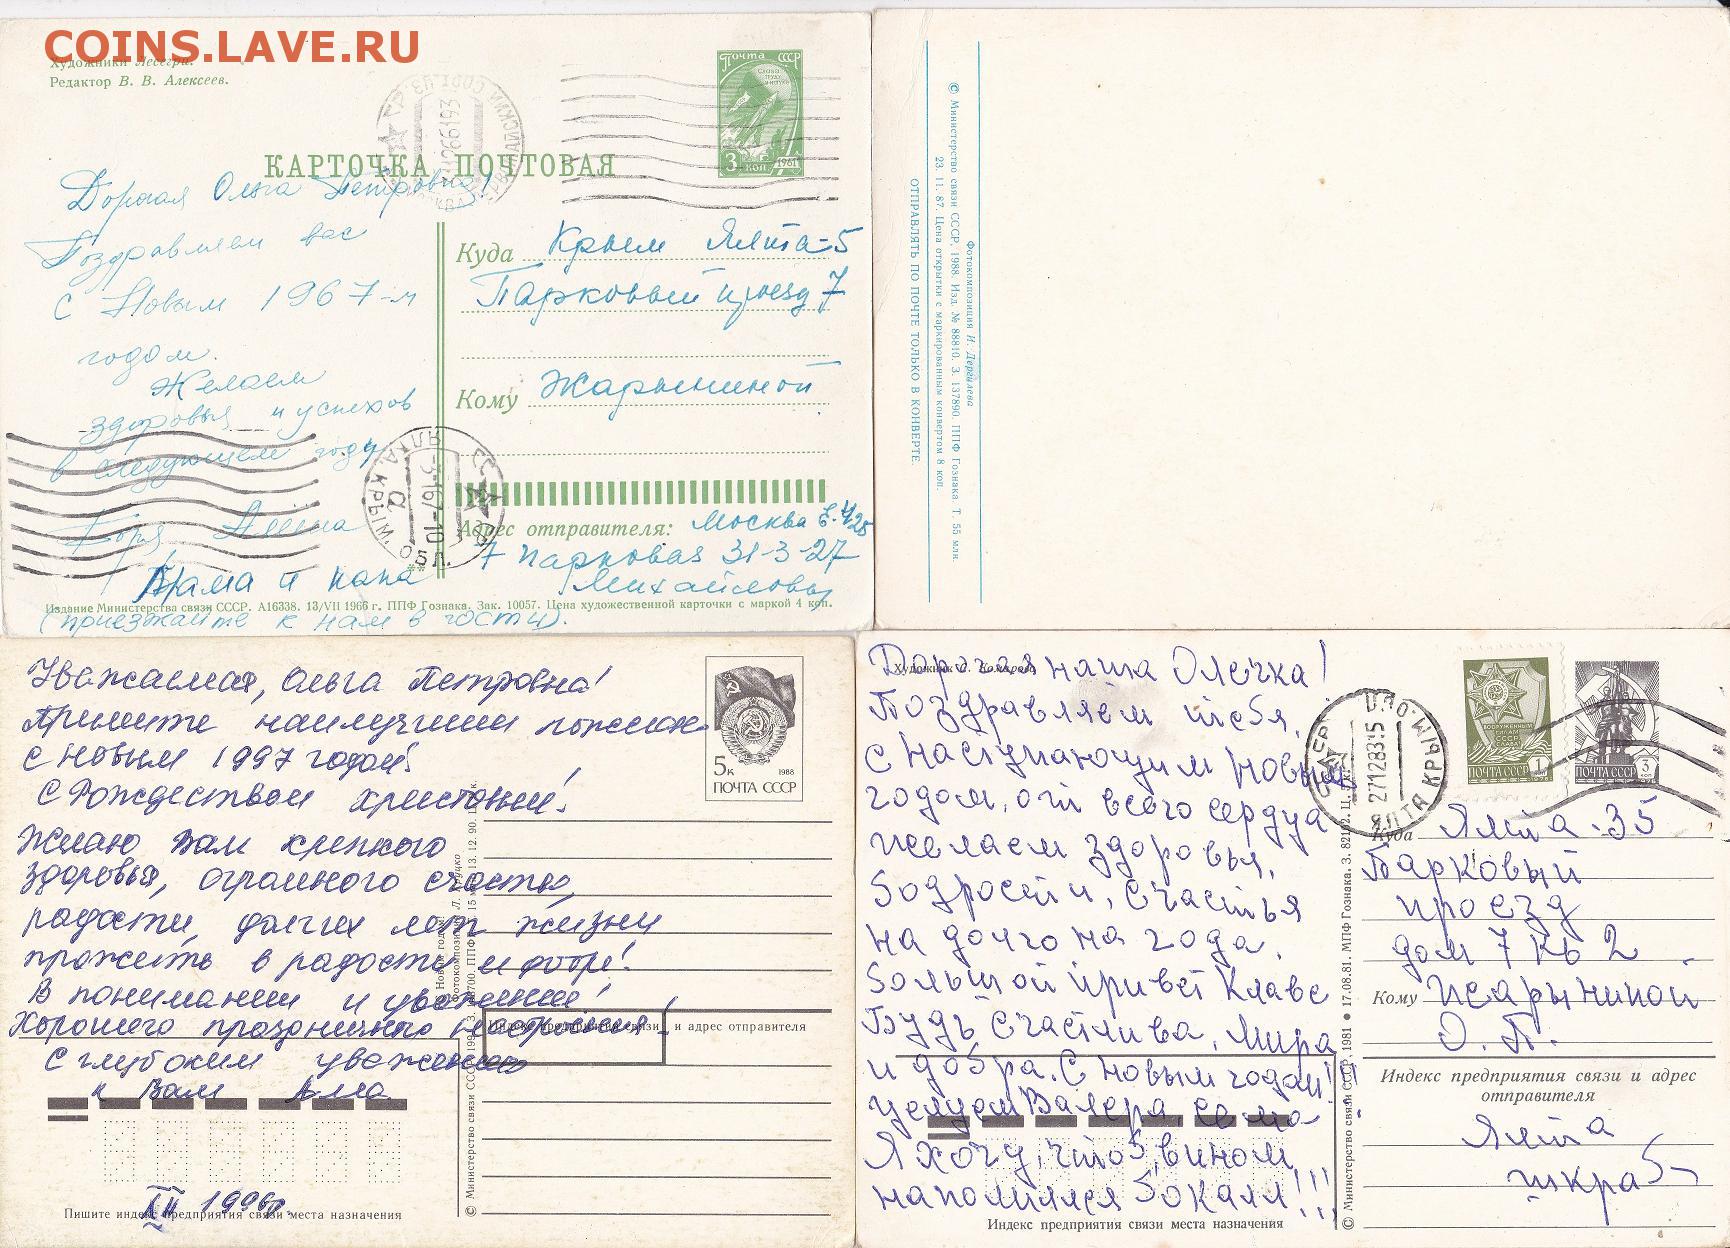 COINS.LAVE.RU
Художники Лесегри.
Редактор В. В. Алексеев.
Почта СССР
3 коп.
1961
КАРТОЧКА ПОЧТОВАЯ
Дорогая Ольга Петровна!
Поздравляем вас
с Новым 1967-м
годом.
Желаем
здоровья и успехов
в следующем году
Боря Алеша
Мама и папа
(приезжайте к нам в гости).
Куда Крым Ялта-5
Парковый проезд 7
Кому Жарыниной
Адрес отправителя: Москва Е-425
7 Парковая 31-3-27
Михайловы
Издание Министерства связи СССР. А16338. 13/VII 1966 г. ППФ Гознака. Зак. 10057. Цена художественной карточки с маркой 4 коп.
Фотокомпозиция И. Дергилева
© Министерство связи СССР, 1988. Изд. № 88810. З. 137890. ППФ Гознака. Т. 55 млн.
23. 11. 87. Цена открытки с маркированным конвертом 8 коп.
ОТПРАВЛЯТЬ ПО ПОЧТЕ ТОЛЬКО В КОНВЕРТЕ.
Уважаемая, Ольга Петровна!
Примите наилучшии
с новым 1997 годом!
С Рождеством христовым!
Желаю Вам крепкого
здоровья, огромного счастья,
радости, долгих лет жизни
прожить в радости и добре!
В понимании и уважении!
Хорошего праздничного настроения
С глубоким уважением
к Вам Алла
1996г.
5к
1988
ПОЧТА СССР
Индекс предприятия связи и адрес отправителя
© Министерство связи СССР
Пишите индекс предприятия связи места назначения
Художник
Дорогая наша Олечка!
Поздравляем тебя,
с наступающим новым
годом, от всего сердца
желаем здоровья,
бодрости, счастья
на долго на года,
большой привет Клаве
Будь счастлива, мира
и добра. С новым годом!!!
целуем Валера
Я хочу, чтоб, вином
наполнялся бокал!!!
ВООРУЖЕННЫМ СИЛАМ СССР СЛАВА
ПОЧТА СССР 1976
1
ПОЧТА СССР
3
27128315
ЯЛТА КРЫМ. ОБЛ
Куда Ялта-35
Парковый
проезд
дом 7 кв 2
Кому Жарыниной
О.П.
Индекс предприятия связи и адрес
отправителя
Ялта
© Министерство связи СССР, 1981 • 17.08.81. МПФ Гознака. З. 82192. Ц.
Индекс предприятия связи места назначения